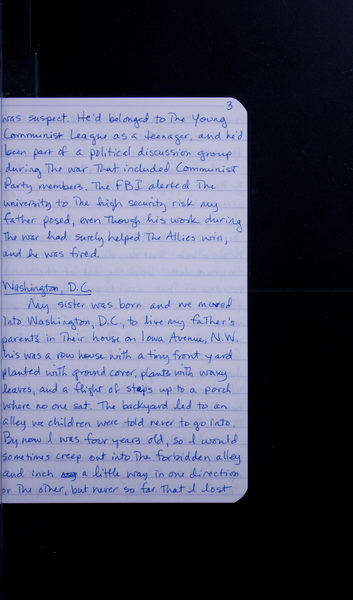 3
was suspect. He'd belonged to The Young
Communist League as a teenager, and he'd
been part of a political discussion group
during The war That included Communist
Party members. The FBI alerted The
university to The high security risk my
father posed, even Though his work during
The war had surely helped The Allies win,
and he was fired.
Washington, D.C.
My sister was born and we moved
into Washington, D.C., to live my father's
parents in Their house on Iowa Avenue, N.W.
This was a row house with a tiny front yard
planted with ground cover, plants with waxy
leaves, and a flight of steps up to a porch
where no one sat. The backyard led to an
alley we children were told never to go into.
By now I was four years old, so I would
sometimes creep out into The forbidden alley
and inch a little way in one direction
or The other, but never so far That I lost